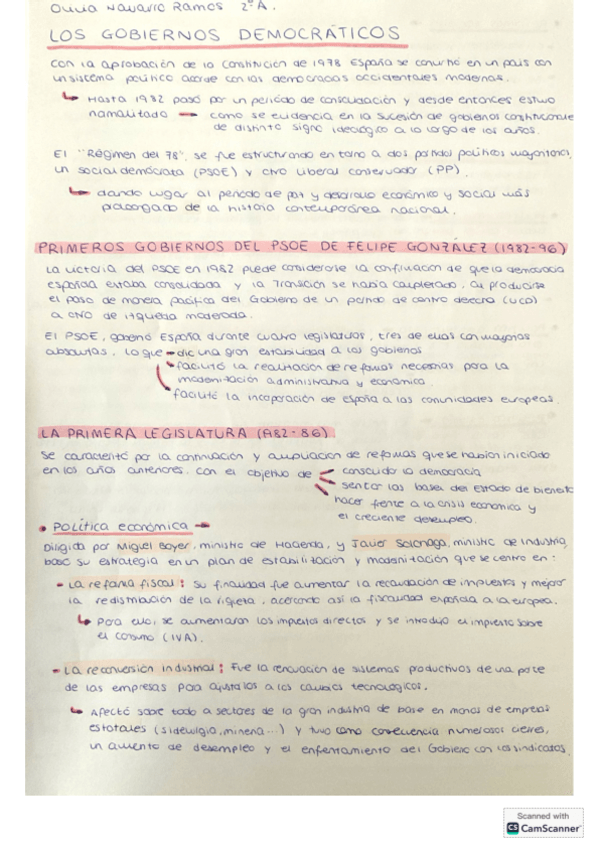 Olivia Navarro Ramos 2º A.
LOS GOBIERNOS DEMOCRÁTICOS
Con la aprobación de la Constitución de 1978 España se convirtió en un país con
un sistema político acorde con las democracias occidentales modernas.
Hasta 1982 pasó por un periodo de consolidación y desde entonces estuvo
normalizado como se evidencia en la sucesión de gobiernos constitucionale
de distinto signo ideológico a lo largo de los años.
El "Régimen del 78", se fue estructurando en torno a dos partidos políticos mayoritarios,
un socialdemócrata (PSOE) y otro liberal conservador (PP).
dando lugar al periodo de paz y desarrollo económico y social más
prolongado de la historia contemporánea nacional.
PRIMEROS GOBIERNOS DEL PSOE DE FELIPE GONZÁLEZ (1982-96)
La victoria del PSOE en 1982 puede considerarse la confirmación de que la democracia
española estaba consolidada y la Transición se había completado, al producirse
el paso de manera pacífica del Gobierno de un partido de centro derecha (UCD)
a otro de izquierda moderada.
El PSOE, gobernó España durante cuatro legislaturas, tres de ellas con mayorías
absolutas, lo que dio una gran estabilidad a los gobiernos
facilitó la realización de reformas necesarias para la
modernización administrativa y económica.
facilitó la incorporación de España a las comunidades europeas.
LA PRIMERA LEGISLATURA (1982-86)
Se caracterizó por la continuación y ampliación de reformas que se habían iniciado
en los años anteriores. Con el objetivo de consolidar la democracia
sentar las bases del Estado de bienesta
hacer frente a la crisis económica y
el creciente desempleo.
Política económica
Dirigida por Miguel Boyer, ministro de Hacienda, y Javier Solchaga, ministro de Industria,
basó su estrategia en un plan de estabilización y modernización que se centró en:
- La reforma fiscal: Su finalidad fue aumentar la recaudación de impuestos y mejorar
la redistribución de la riqueza, acercando así la fiscalidad española a la europea.
Para ello, se aumentaron los impuestos directos y se introdujo el impuesto sobre
el consumo (IVA).
- La reconversión industrial: Fue la renovación de sistemas productivos de una parte
de las empresas para ajustarlos a los cambios tecnológicos.
Afectó sobre todo a sectores de la gran industria de base en manos de empresas
estatales (siderurgia, minería...) y tuvo como consecuencia numerosos cierres,
un aumento de desempleo y el enfrentamiento del Gobierno con los sindicatos.
Scanned with
CS CamScanner